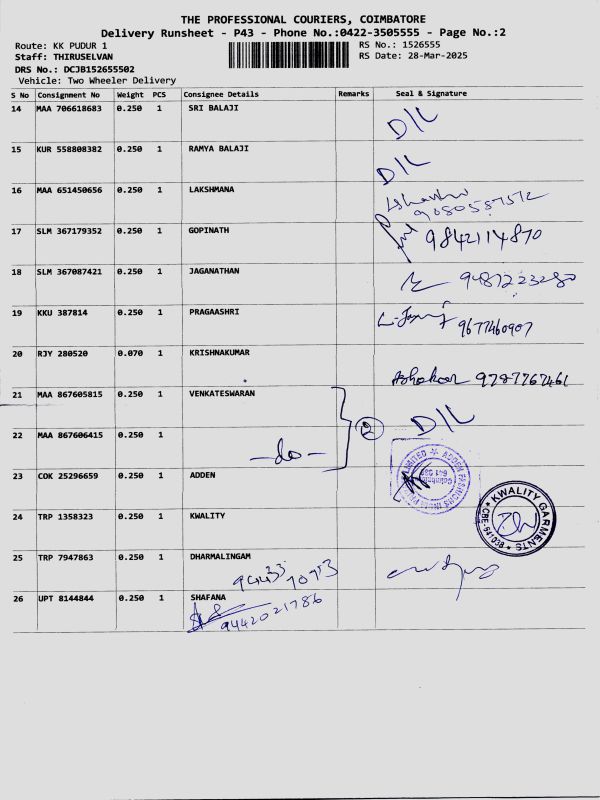 THE PROFESSIONAL COURIERS, COIMBATORE
Delivery Runsheet - P43 - Phone No.:0422-3505555 - Page No.:2
Route: KK PUDUR 1
RS No.: 1526555
Staff: THIRUSELVAN
RS Date: 28-Mar-2025
DRS No.: DCJB152655502
Vehicle: Two Wheeler Delivery
S No Consignment No Weight PCS Consignee Details Remarks Seal & Signature
14 MAA 706618683 0.250 1 SRI BALAJI D/L
15 KUR 558808382 0.250 1 RAMYA BALAJI D/L
16 MAA 651450656 0.250 1 LAKSHMANA
9080587572
17 SLM 367179352 0.250 1 GOPINATH 9842114870
18 SLM 367087421 0.250 1 JAGANATHAN 9487223280
19 KKU 387814 0.250 1 PRAGAASHRI 9677460907
20 RJY 280520 0.070 1 KRISHNAKUMAR
Ashokan 9787767461
21 MAA 867605815 0.250 1 VENKATESWARAN ② D/L
22 MAA 867606415 0.250 1
-do-
23 COK 25296659 0.250 1 ADDEN
24 TRP 1358323 0.250 1 KWALITY KWALITY GARMENTS
25 TRP 7947863 0.250 1 DHARMALINGAM
26 UPT 8144844 0.250 1 SHAFANA
9442021786